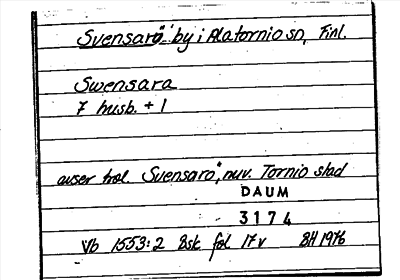 Svensarö" by i Alatornio sn, Finl.
Swensara
7 husb. + 1
avser trol. Svensarö", nuv. Tornio stad
DAUM
3174
Vb 1553:2 Bsk fol 17v BH 1976